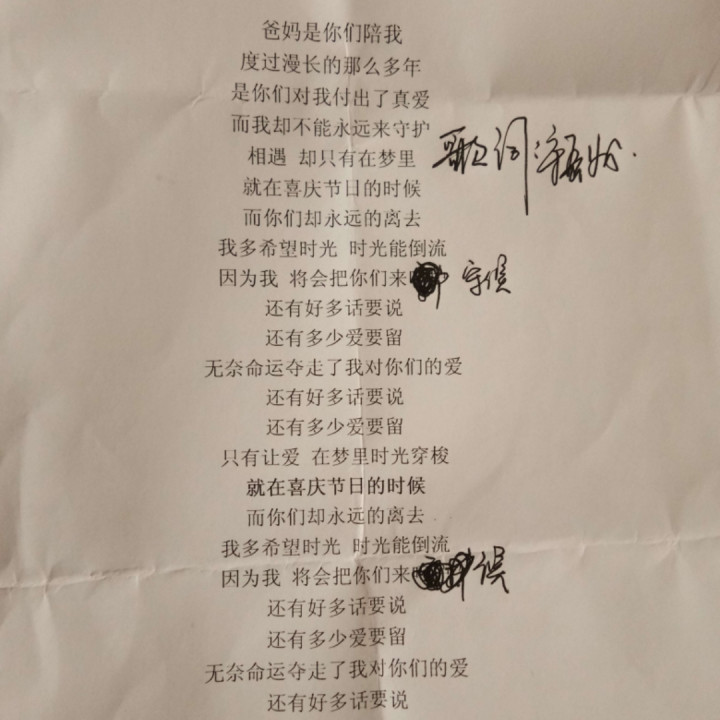 爸妈是你们陪我
度过漫长的那么多年
是你们对我付出了真爱
而我却不能永远来守护
歌词
相遇 却只有在梦里
就在喜庆节日的时候
而你们却永远的离去
我多希望时光 时光能倒流
因为我 将会把你们来 守候
还有好多话要说
还有多少爱要留
无奈命运夺走了我对你们的爱
还有好多话要说
还有多少爱要留
只有让爱 在梦里时光穿梭
就在喜庆节日的时候
而你们却永远的离去
我多希望时光 时光能倒流
因为我 将会把你们来 候
还有好多话要说
还有多少爱要留
无奈命运夺走了我对你们的爱
还有好多话要说